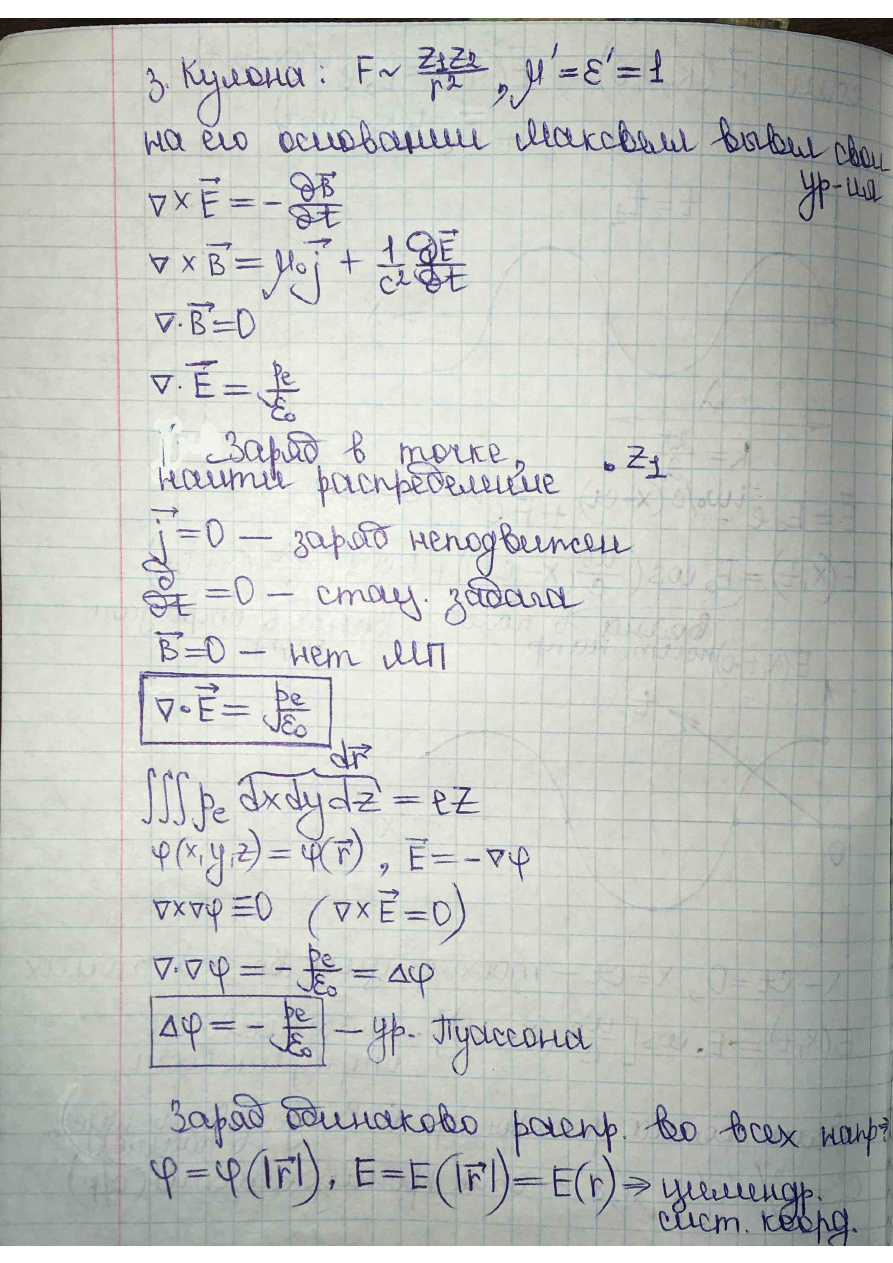 з. Кулона: F ~ Z₁Z₂/r², μ' = ε' = 1
на его основании Максвелл вывел свои
ур-ия
∇×E⃗ = -∂B⃗/∂t
∇×B⃗ = μ₀j⃗ + 1/c² ∂E⃗/∂t
∇·B⃗ = 0
∇·E⃗ = ρe/ε₀
Заряд в точке, · Z₁
найти распределение
j⃗ = 0 — заряд неподвижен
∂/∂t = 0 — стац. задача
B⃗ = 0 — нет МП
∇·E⃗ = ρe/ε₀
dr⃗
∭ρe dxdydz = eZ
φ(x,y,z) = φ(r⃗), E⃗ = -∇φ
∇×∇φ ≡ 0 (∇×E⃗ = 0)
∇·∇φ = -ρe/ε₀ = Δφ
Δφ = -ρe/ε₀ — ур. Пуассона
Заряд одинаково распр. во всех напр.
φ = φ(|r⃗|), E = E(|r⃗|) = E(r) ⇒ цилиндр.
сист. коорд.